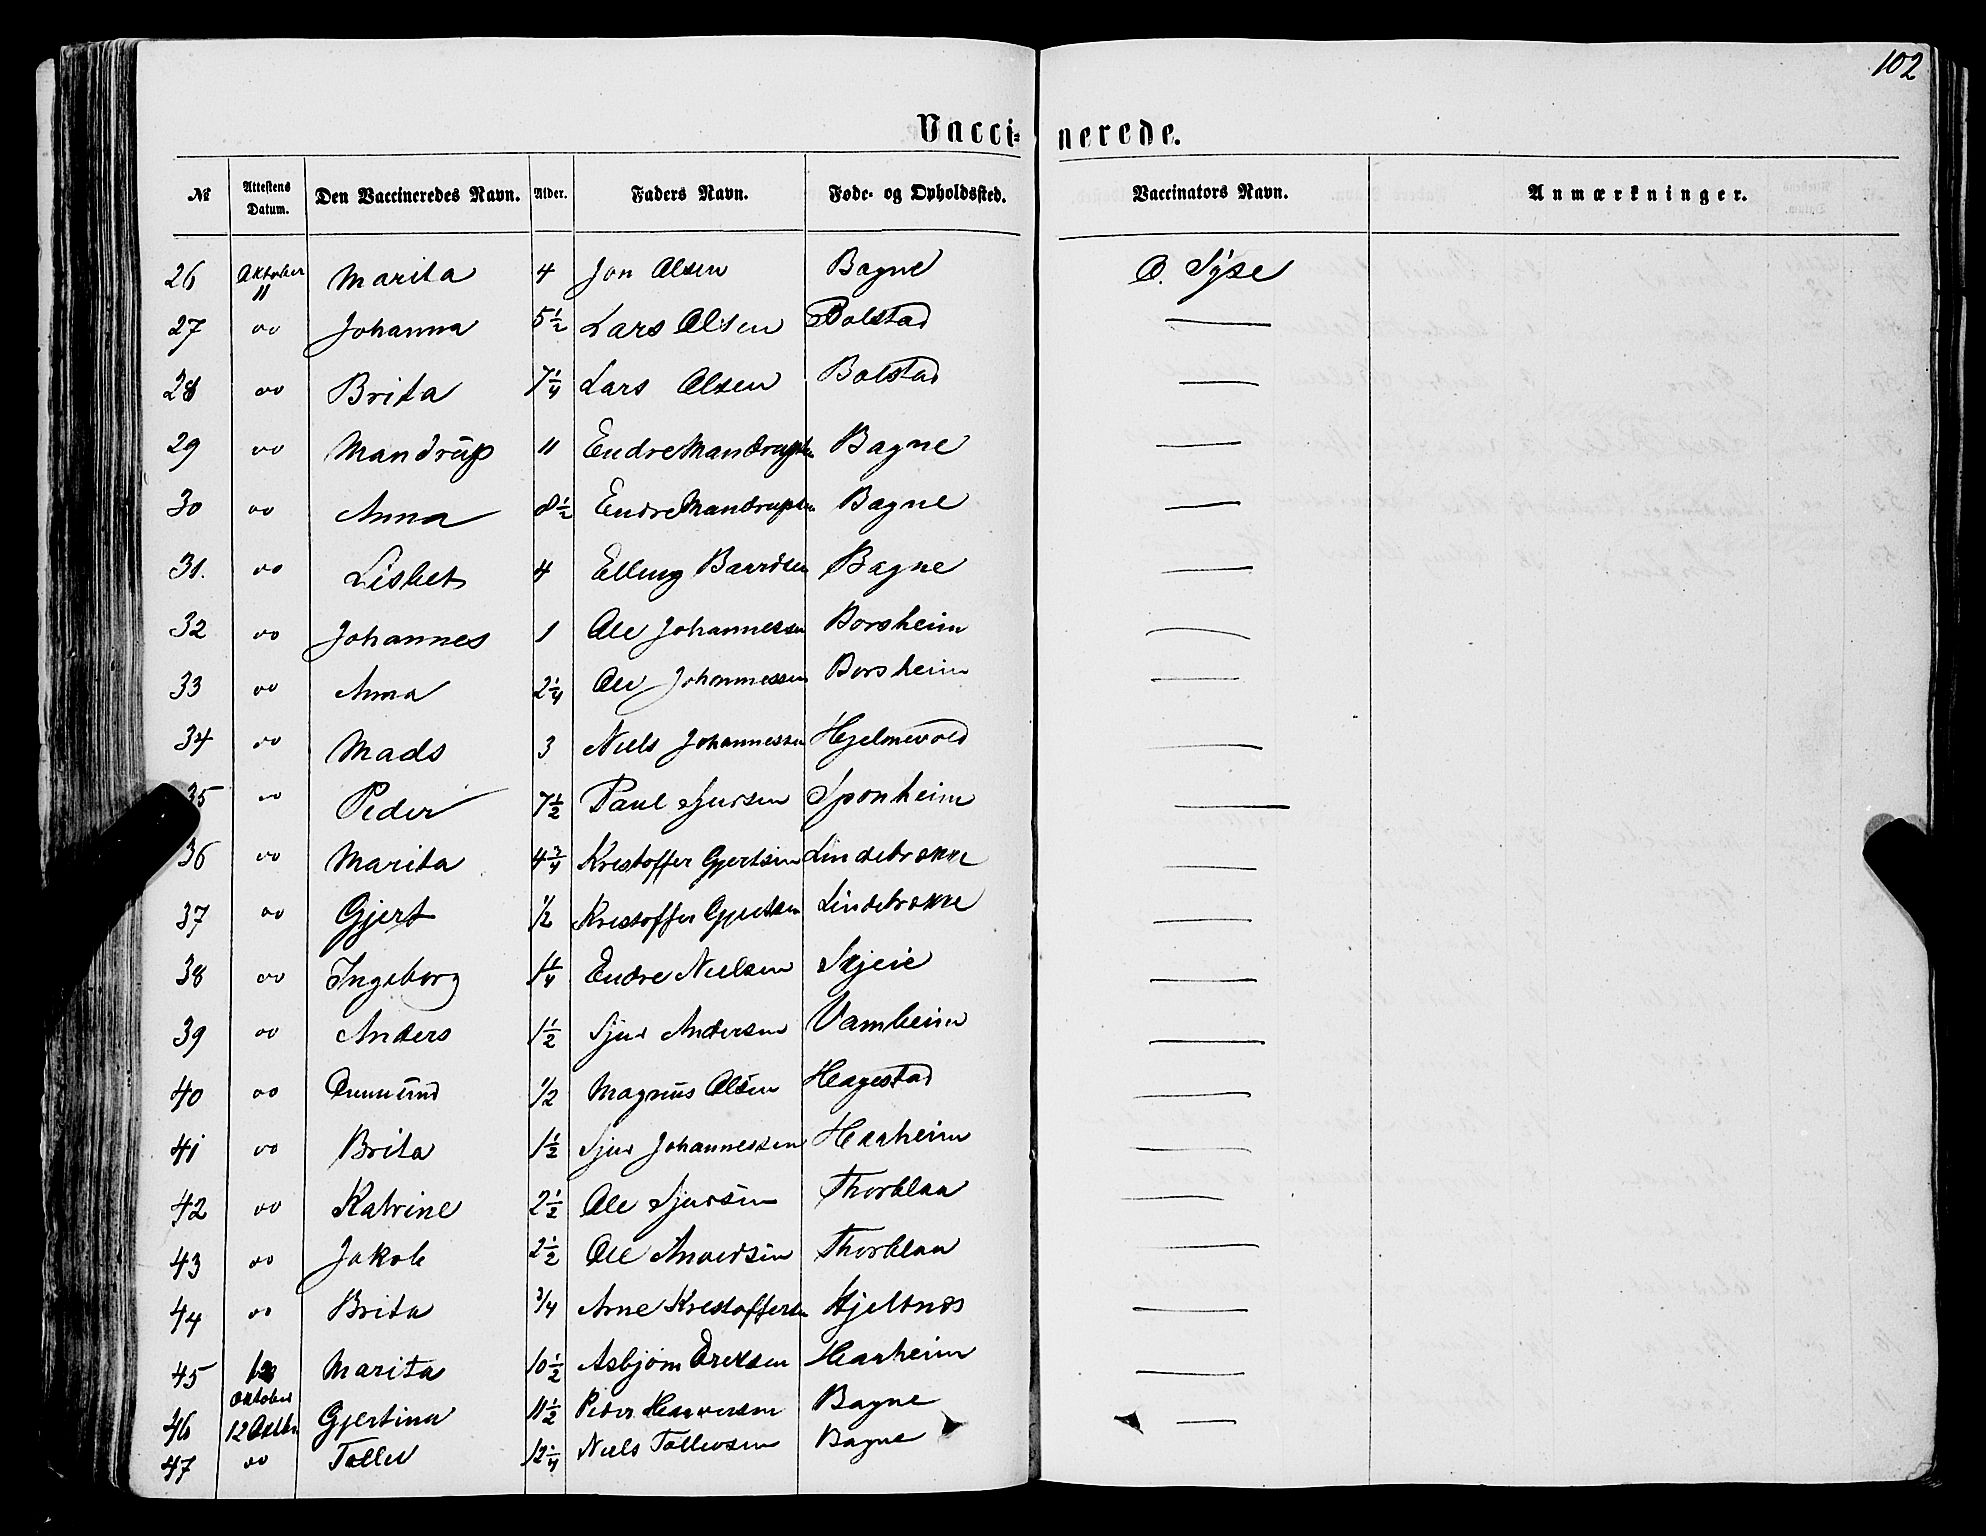 102
Vaccinerede.
№ Attestens Datum. Den Vaccineredes Navn. Alder. Faders Navn. Føde- og Opholdssted. Vaccinators Navn. Anmærkninger.
26 Oktober 11 Marita 4 Jon Olsen Bagne O. Syse
27 do Johanna 5 1/2 Lars Olsen Bolstad —
28 do Brita 7 1/4 Lars Olsen Bolstad —
29 do Mandrup 11 Endre Mandrupsen Bagne —
30 do Anna 8 1/2 Endre Mandrupsen Bagne —
31. do Lisbet 4 Elling Baardsen Bagne —
32 do Johannes 1 Ole Johannessen Borsheim —
33 do Anna 2 1/4 Ole Johannessen Borsheim —
34 do Mads 3 Niels Johannessen Hjelmevold —
35 do Peder 7 1/2 Paul Sjursen Sponheim —
36 do Marita 4 3/4 Krestoffer Gjertsen Lindebrekke —
37 do Gjert 1/2 Krestoffer Gjertsen Lindebrekke —
38 do Ingeborg 1 1/4 Endre Nielsen Skjeie —
39 do Anders 1 1/2 Sjur Andersen Vamheim —
40 do 1/2 Magnus Olsen Hagestad —
41 do Brita 1 1/2 Sjur Johannessen Haaheim —
42 do Katrine 2 1/2 Ole Sjursen Thorblaa —
43 do Jakob 2 1/2 Ole Andersen Thorblaa —
44 do Brita 3/4 Arne Krestoffersen Hjeltnes —
45 12 Oktober Marita 10 1/2 Asbjørn Ericksen Haaheim —
46 12 Octbr Gjertina 11 1/2 Peder Bagne —
47 do Tollev 12 1/4 Niels Tollevsen Bagne